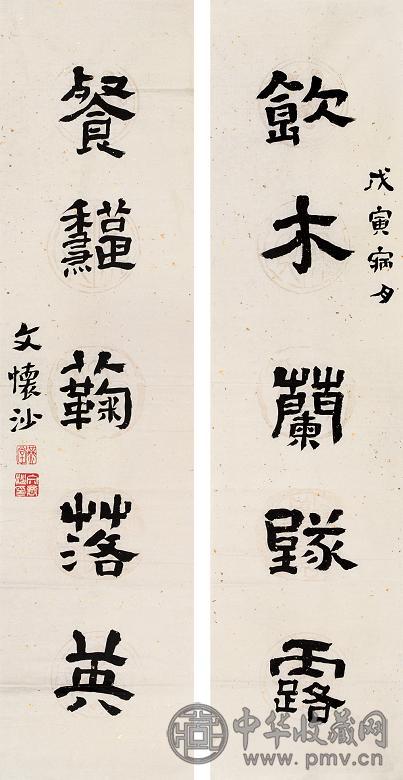 戊寅寎月
飲木蘭墜露
餐龝蘜落英
文懷沙
中华收藏网
www.pmv.cn